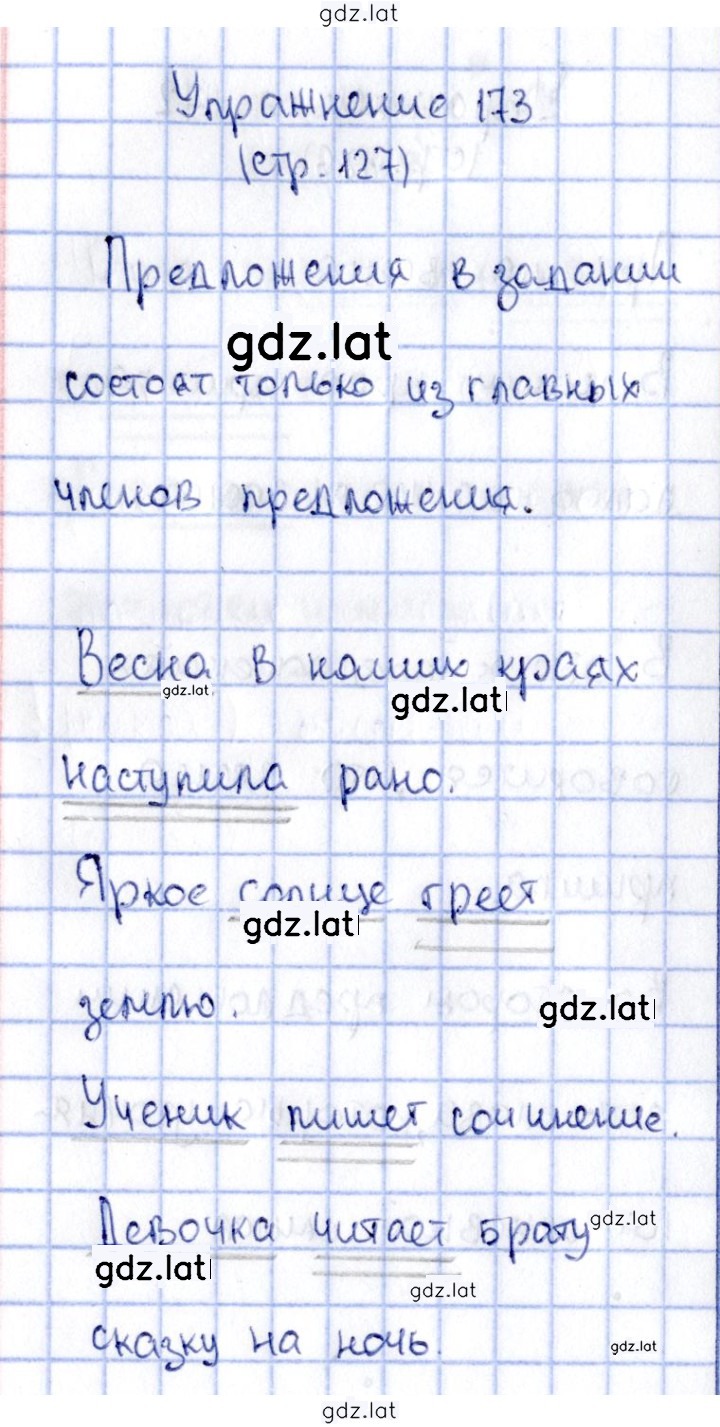 gdz.lat
Упражнение 173
(стр. 127)
Предложения в задании
gdz.lat
состоят только из главных
членов предложения.
Весна в наших краях
gdz.lat
gdz.lat
наступила рано.
Яркое солнце греет
gdz.lat
землю.
gdz.lat
Ученик пишет сочинение.
Девочка читает брату
gdz.lat
gdz.lat
gdz.lat
сказку на ночь.
gdz.lat
gdz.lat